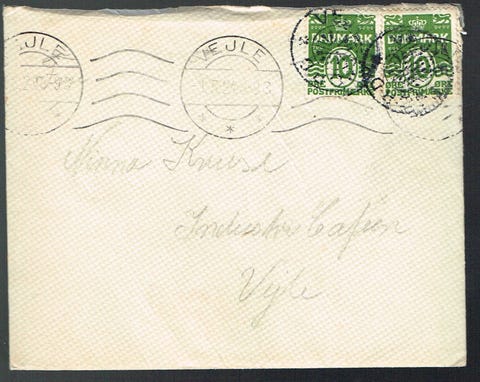 VEJLE
VEJLE
DANMARK
DANMARK
10
10
ØRE ØRE
POSTFRIMÆRKE
ØRE ØRE
POSTFRIMÆRKE
Ninna Kruse
Industri Cafeen
Vejle